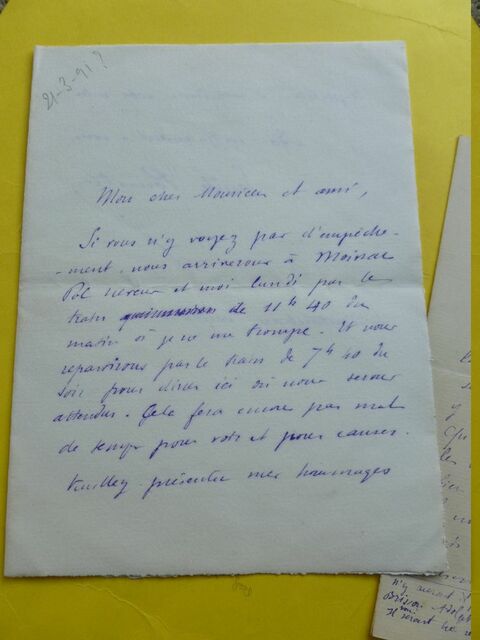 21-3-91?
Mon cher Monsieur et ami,
Si vous n'y voyez pas d'empêche-
-ment, nous arriverons à Moissac
Pol Neveux et moi lundi par le
train de 11h 40 du
matin si je ne me trompe. Et nous
repartirons par le train de 7h 40 du
soir pour dîner ici où nous serons
attendus. Cela fera encore pas mal
de temps pour voir et pour causer.
Veuillez présenter mes hommages
n'y seront